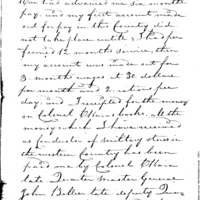 had advanced me six months
pay, and my first account made
out for pay in this Country did
not take place until I had per-
formed 12 months service, then
my account was made out for
3 months wages at 30 dollars
per month and 2 rations per
day, and I receipted for the money
on Colonel O'Haras books. All the
money which I have received
as Conductor of military stores in
the western Country has been
paid me by Colonel O'Hara
late Quarter Master General
John Belli late deputy Quar